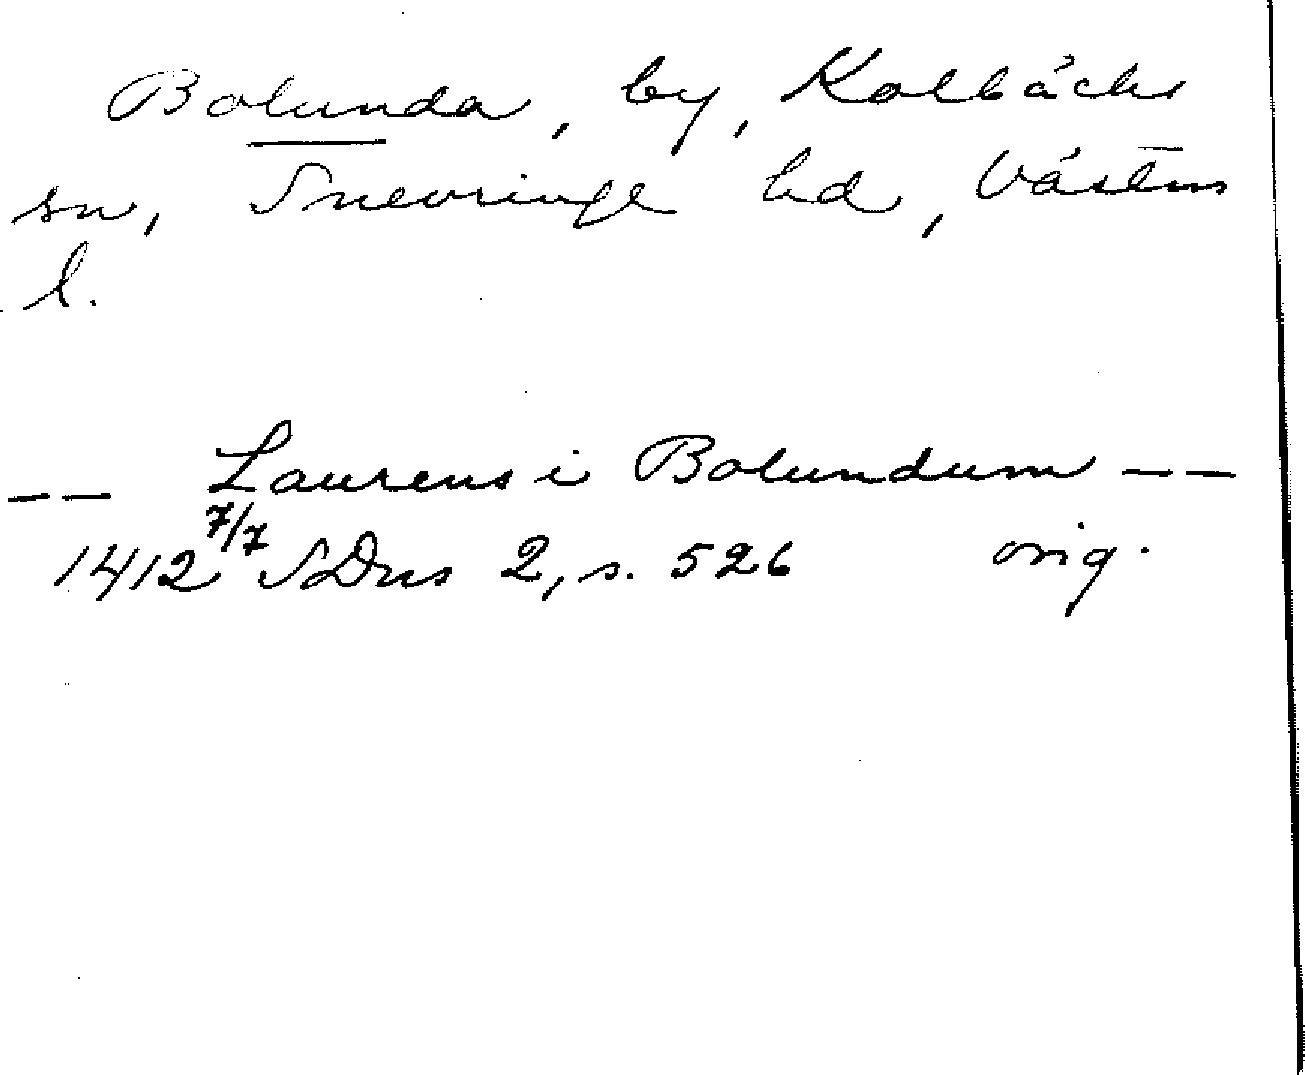 Bolunda, by, Kolbäcks
sn, Snevringe hd, Västm
l.
-- Laurens i Bolundum --
1412 7/7 SDns 2, s. 526 orig.